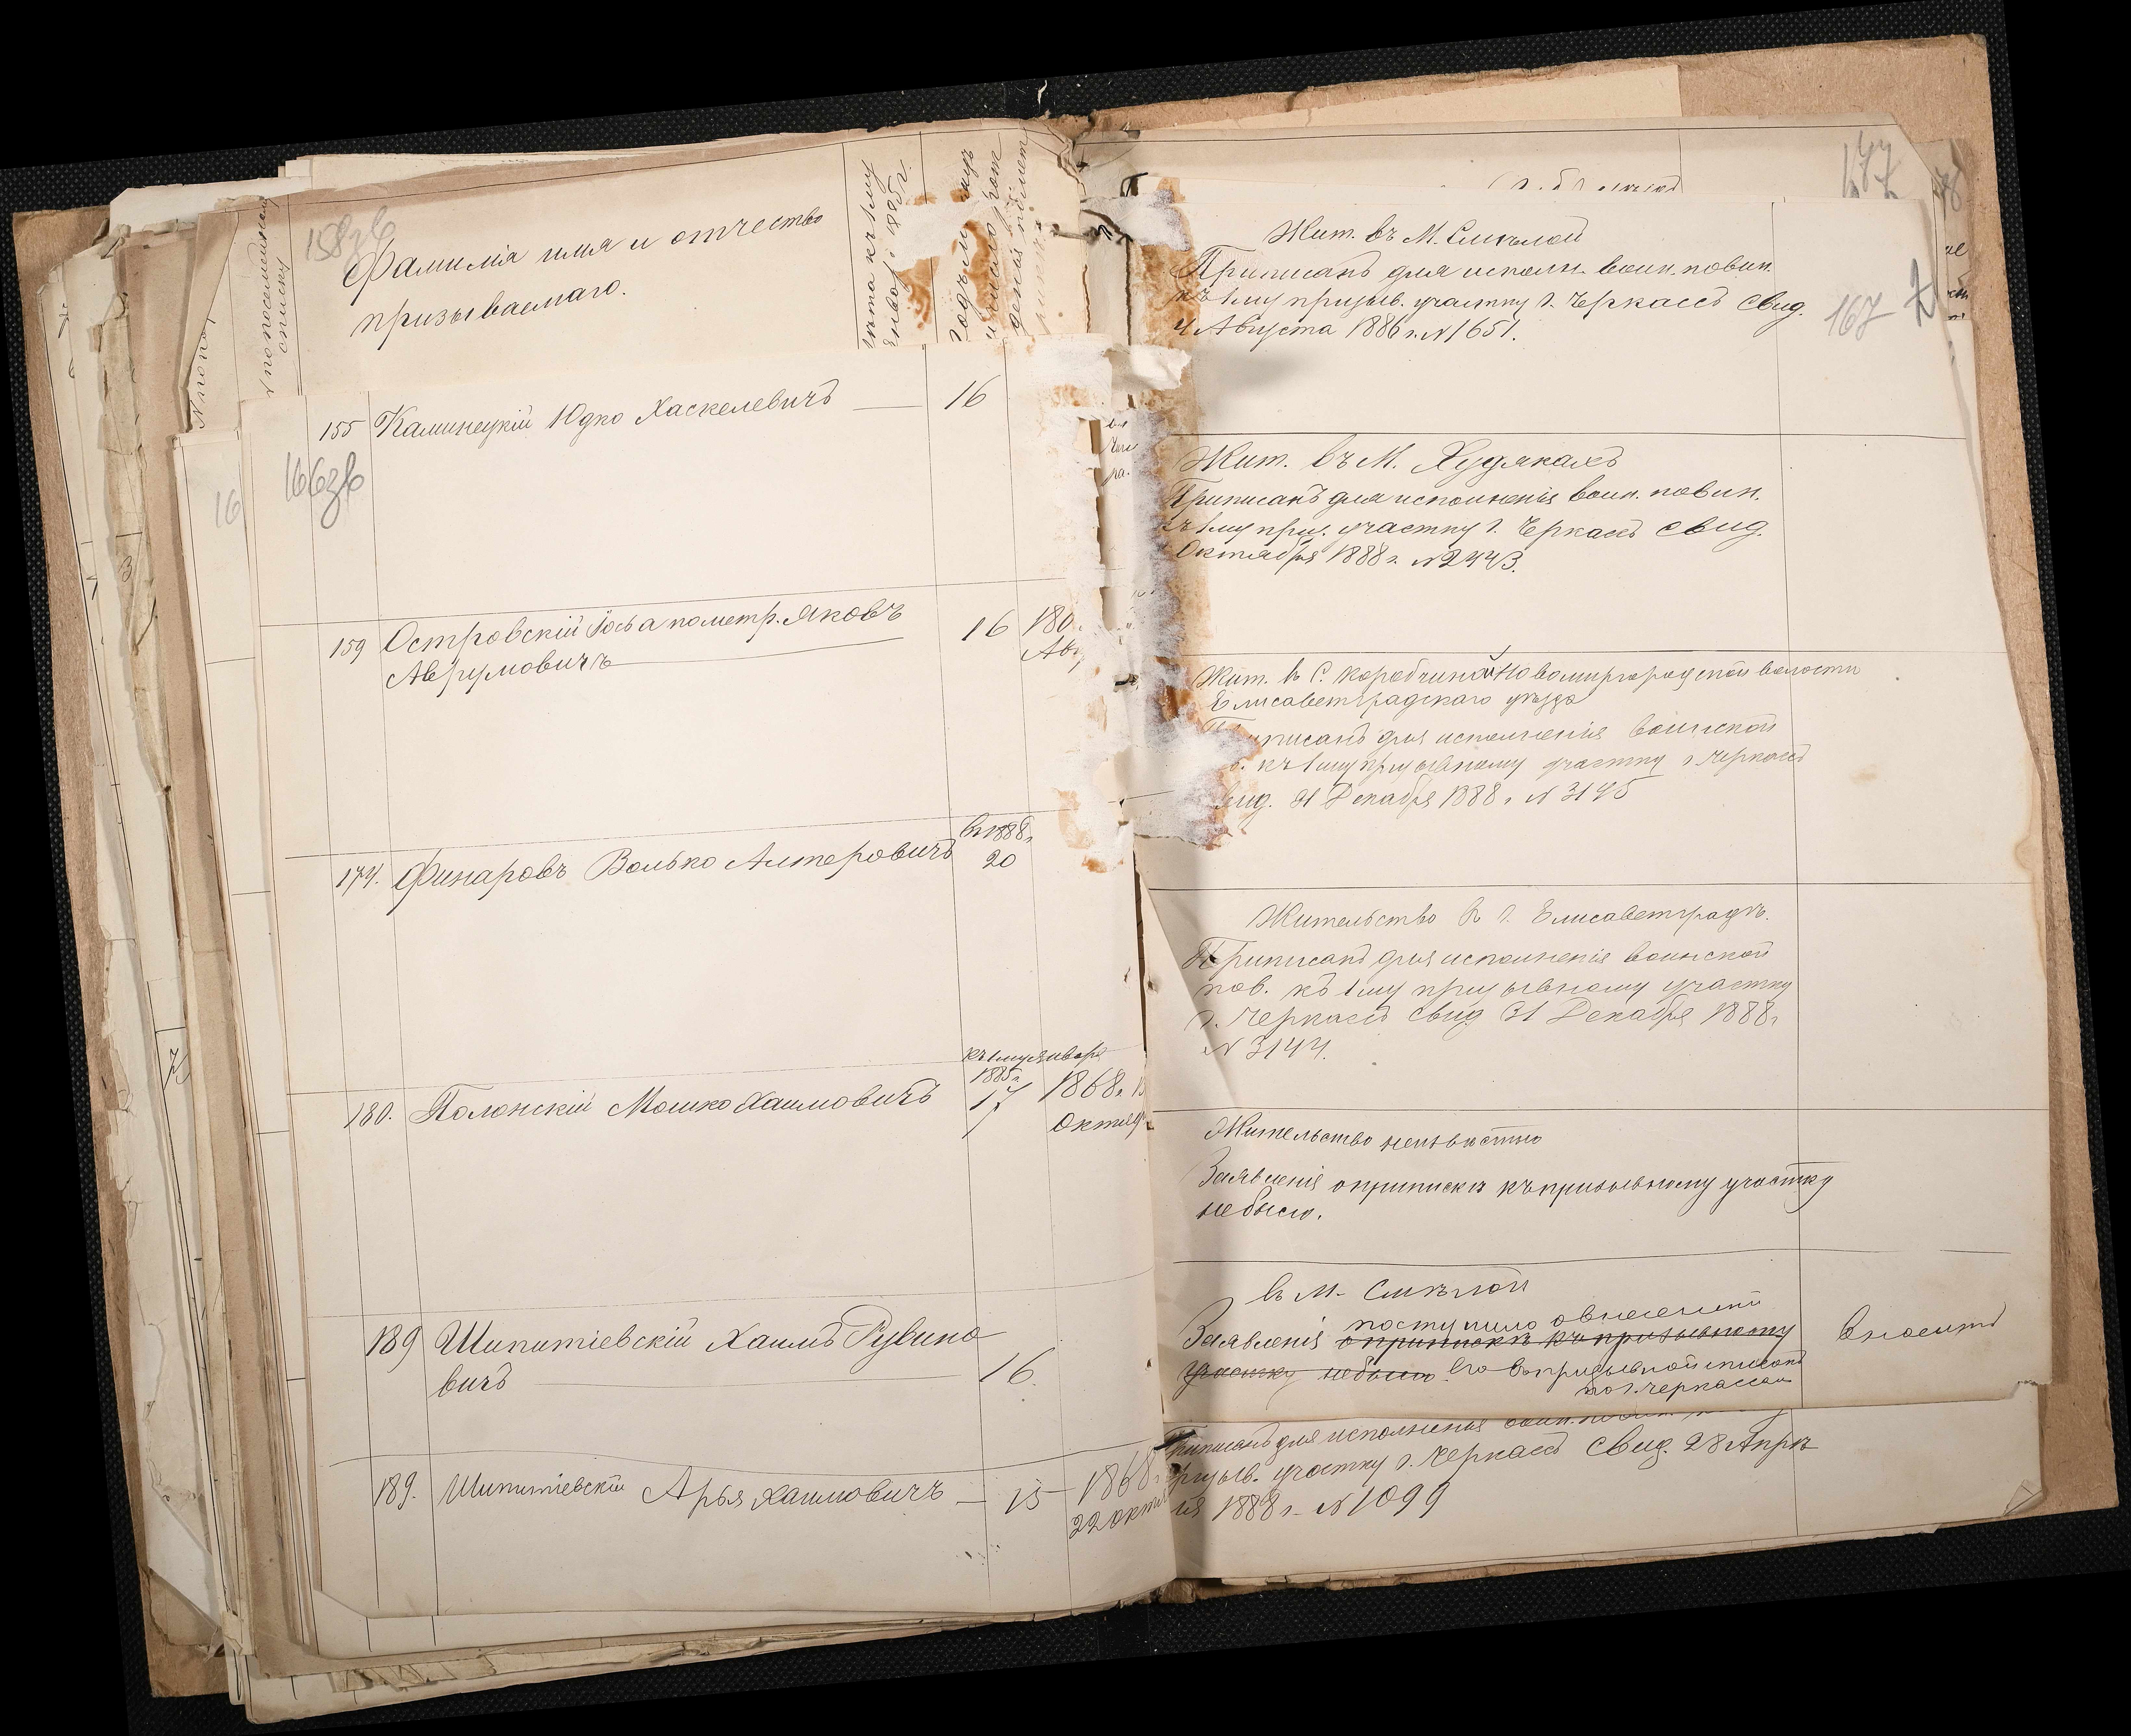 158зв
Фамилія имя и отчество
призываемаго.
№ по посемейному
списку
лѣта къ 1му
Января 1885 г.
155 Каминецкій Юдко Хаскелевичъ — 16
166зв
159 Островскій Іось а по метр. Яковъ
Аврумовичъ
16 180
Авг
174. Финаровъ Волько Алтеровичъ
въ 1888 г.
20
180. Полонскій Мошко Хаимовичъ
къ 1му января
1885 г.
17 1868 г. 18
Октяб
189 Шипитіевскій Хаимъ Рувино
вичъ — 16.
189. Шипитіевскій Арья Хаимовичъ — 15 1868 г.
22 Октяб
177
167
Жит. въ М. Смѣлой
Приписанъ для исполн. воин. повин.
къ 1му призыв. участку г. Черкассъ свид.
4 Августа 1886 г. № 1651.
Жит. въ М. Худякахъ
Приписанъ для исполненія воин. повин.
къ 1му приз. участку г. Черкассъ свид.
Октября 1888 г. № 2443.
Жит. въ С. Коробчиной Новомиргородской волости
Елисаветградскаго уѣзда
Приписанъ для исполненія воинской
къ 1му призывному участку г. Черкассъ
свид. 31 Декабря 1888 г. № 3145
Жительство въ г. Елисаветградѣ.
Приписанъ для исполненія воинской
пов. къ 1му призывному участку
г. Черкассъ свид. 31 Декабря 1888 г.
№ 3144.
Жительство неизвѣстно
Заявленія о припискѣ къ призывному участку
не было.
въ М. Смѣлой
поступило о внесеніи
Заявленія о припискѣ къ призывному
участку не было его въ призывной списокъ
по г. Черкассам
вносится
Приписанъ для исполненія воин.
призыв. участку г. Черкассъ свид. 28 Апрѣ
ля 1888 г. № 1099